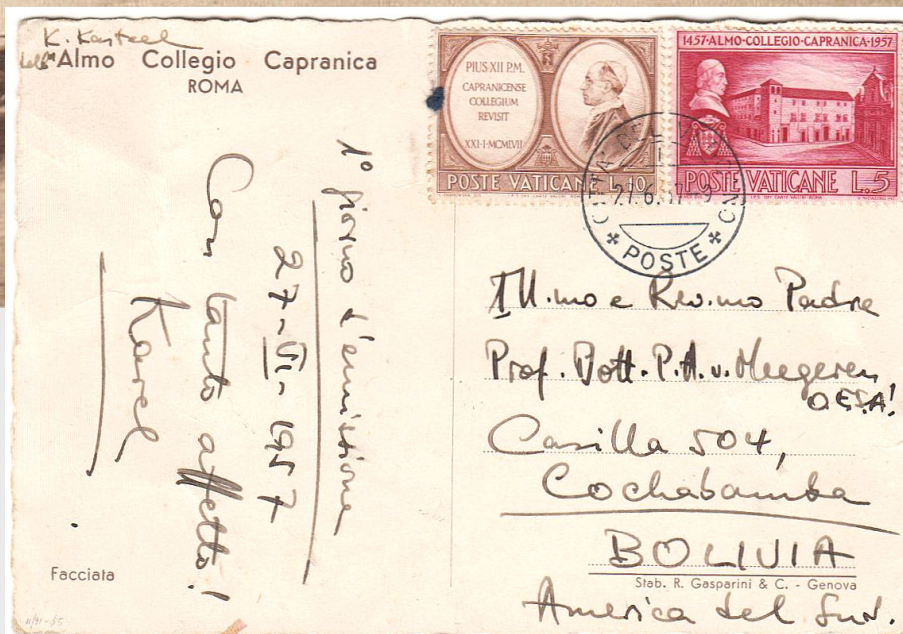 K. Kasteel
Almo Collegio Capranica
ROMA
1º giorno d'emissione
27-VI-1957
Con tanto affetto!
Karel
Facciata
PIUS XII P.M.
CAPRANICENSE
COLLEGIUM
REVISIT
XXI·I·MCMLVII
POSTE VATICANE L.10
1457·ALMO·COLLEGIO·CAPRANICA·1957
POSTE VATICANE L.5
POSTE
Ill.mo e Rev.mo Padre
Prof. Dott. P.A.v. Megeren
O.E.S.A!
Casilla 504,
Cochabamba
BOLIVIA
Stab. R. Gasparini & C. - Genova
America del Sud.